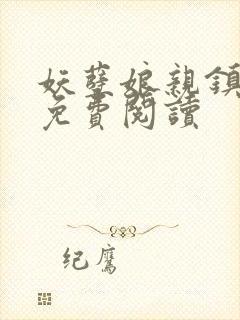 妖孽娘親鎮
免費閱讀
纪鹰